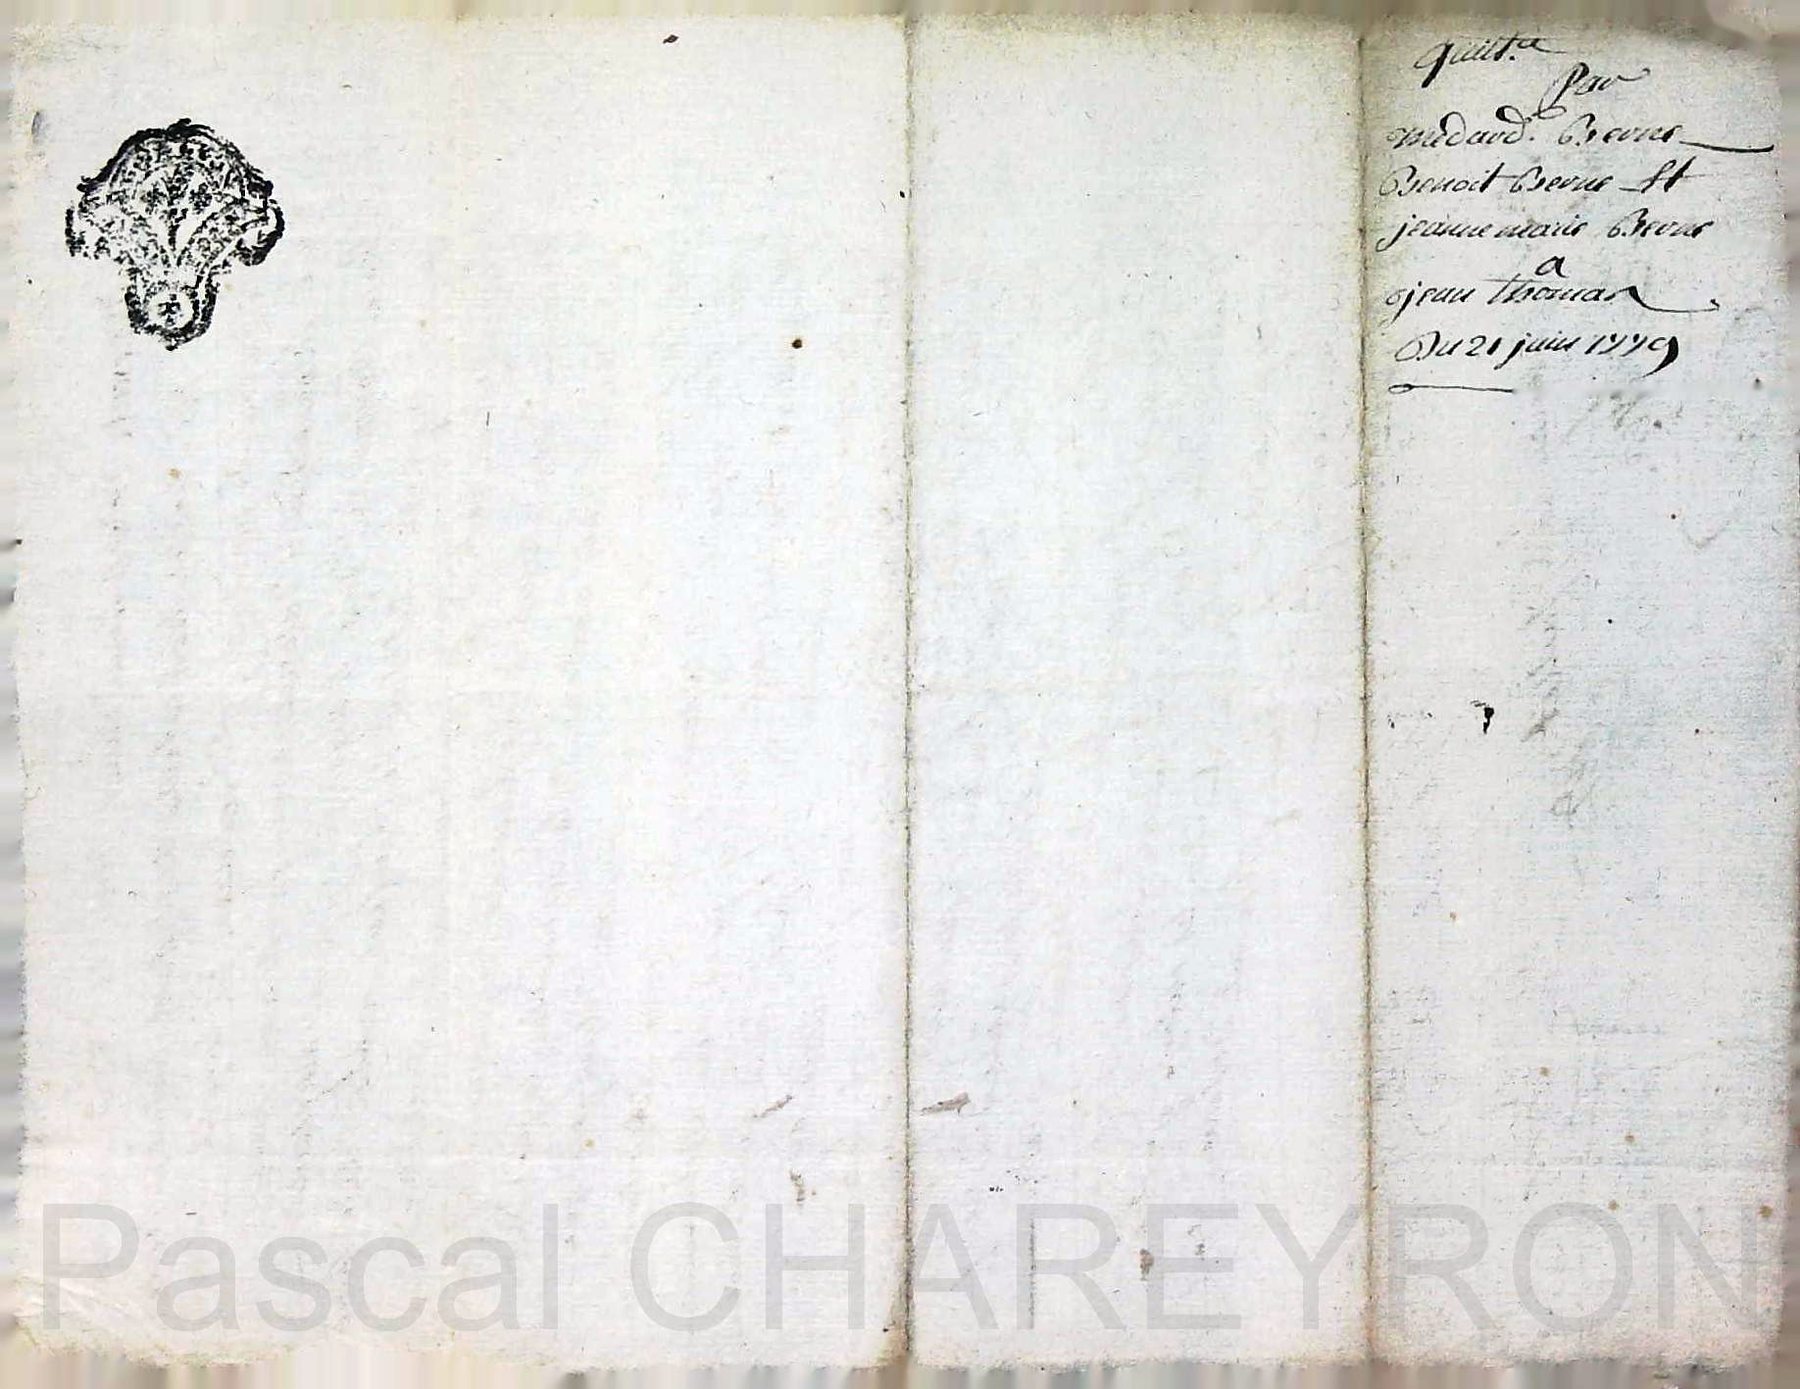 Quitt.ce
Par
medard. Berne
Benoit Berne Et
jeanne marie Berne
a
jean thomas
Du 21 juin 1779
Pascal CHAREYRON